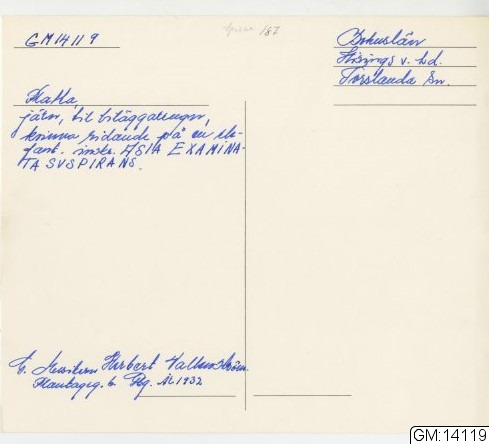 GM 14119
187
Bohuslän
Hisings v. hd.
Torslanda sn.
Platta,
järn, til biläggareugn,
kvinna ridande på en ele-
fant. inskr. ASIA EXAMINA-
TA SVSPIRANS.
G. Musikern Herbert Wallenström.
Plantageg. 6 Gbg. ÅL 1932
GM:14119